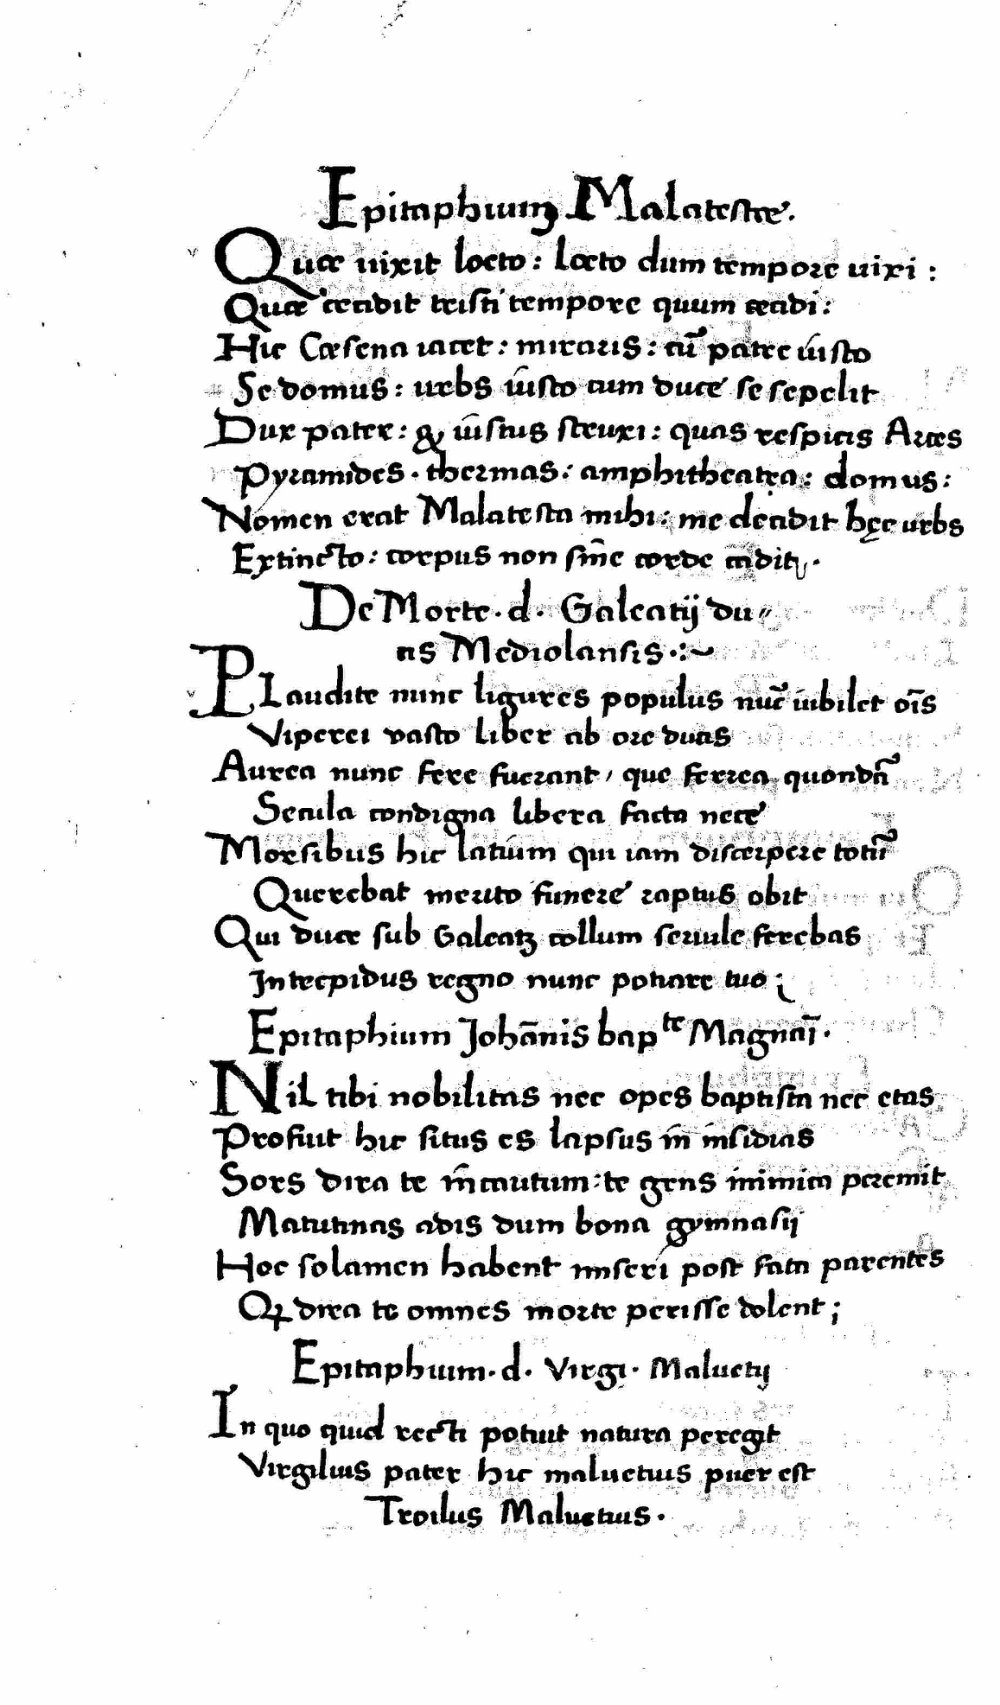 Epitaphium Malatestæ.
Quæ uixit lœto: lœto dum tempore uixi:
Quæ cecidit tristi tempore quum cecidi:
Hic Cæsena iacet: miraris: cū patre iūsto
Se domus: urbs iūsto cum duce se sepelit
Dux pater: & iūstus struxi: quas respicis Arces
Pyramides. thermas: amphitheatra: domus:
Nomen erat Malatesta mihi: me decidit hęc urbs
Extincto: corpus non sine corde cadit.
De Morte. d. Galeatij du〃
cis Mediolansis.:~
Plaudite nunc ligures populus nūc iubilet oīs
Viperei vasto liber ab ore ducis
Aurea nunc fere fuerant, que ferrea quondā
Secula condigna libera facta nece
Morsibus hic latium qui iam discerpere totū
Querebat merito funere raptus obit
Qui duce sub Galeatz collum seruile ferebas
Intrepidus regno nunc potiare tuo;
Epitaphium Johānis bapᵗᵉ Magnaī.
Nil tibi nobilitas nec opes baptista nec etas
Profiut hic situs es lapsus in insidias
Sors dira te incautum: te gens inimica peremit
Matutinas adis dum bona gymnasij
Hoc solamen habent miseri post fata parentes
Ꝙ dira te omnes morte perisse dolent;
Epitaphium. d. Virgi. Maluetij
In quo quid recti potuit natura peregit
Virgilius pater hic maluetius puer est
Troilus Maluetius.